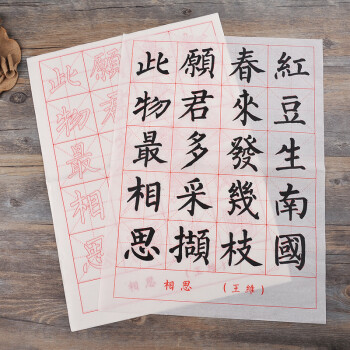 紅豆生南國
春來發幾枝
願君多采擷
此物最相思
相思 相思 (王維)
願君
此物最相思